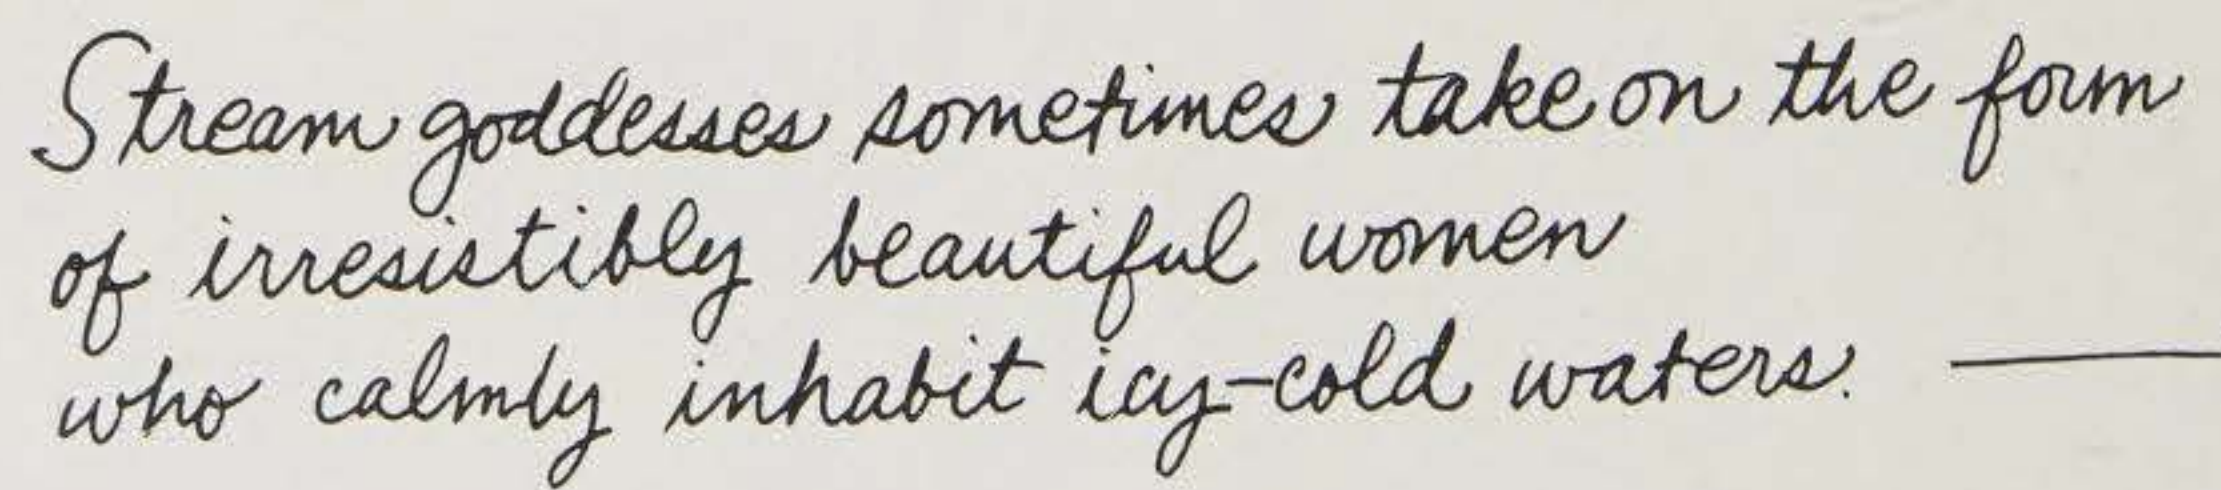 Stream goddesses sometimes take on the form
of irresistibly beautiful women
who calmly inhabit icy-cold waters. —